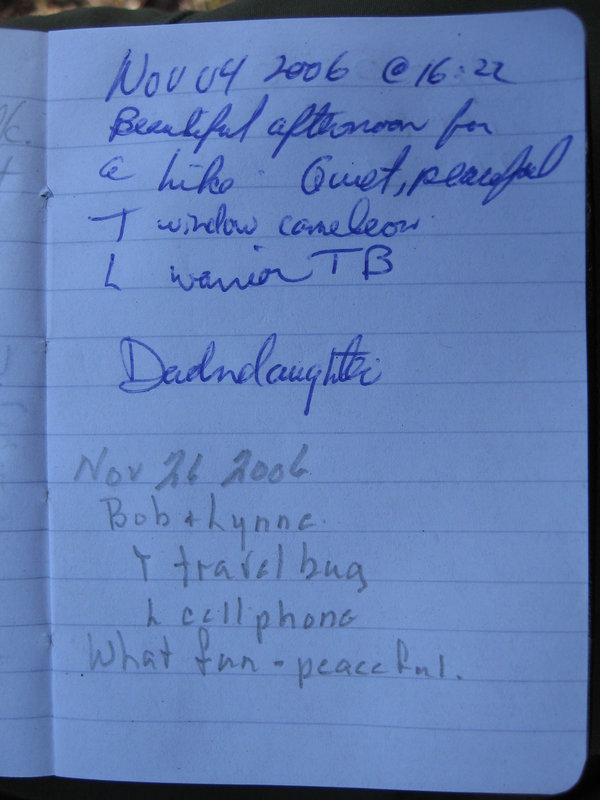 Nov 04 2006 @ 16:22
Beautiful afternoon for
a hike Quiet, peaceful
T window cameleon
L warrior TB
Dadndaughter
Nov 26 2006
Bob + Lynne
T travel bug
L cell phone
What fun - peaceful.